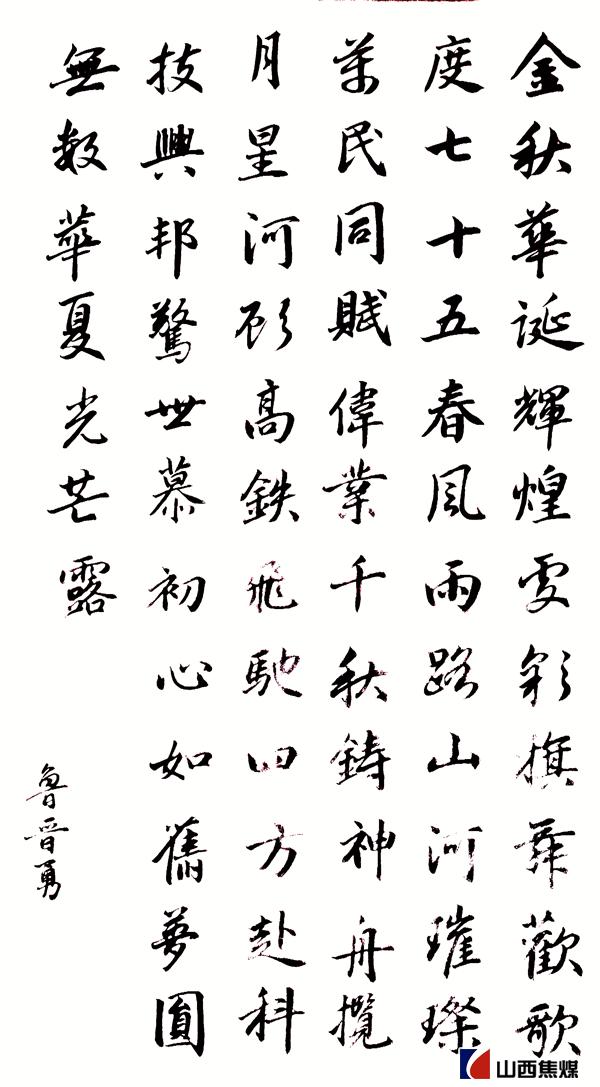 金秋華誕輝煌處彩旗舞歡歌
度七十五春風雨路山河璀璨
萬民同賦偉業千秋鑄神舟攬
月星河顧高鉄飛馳四方赴科
技興邦驚世慕初心如舊夢圓
無數華夏光芒露
魯晋勇
山西焦煤